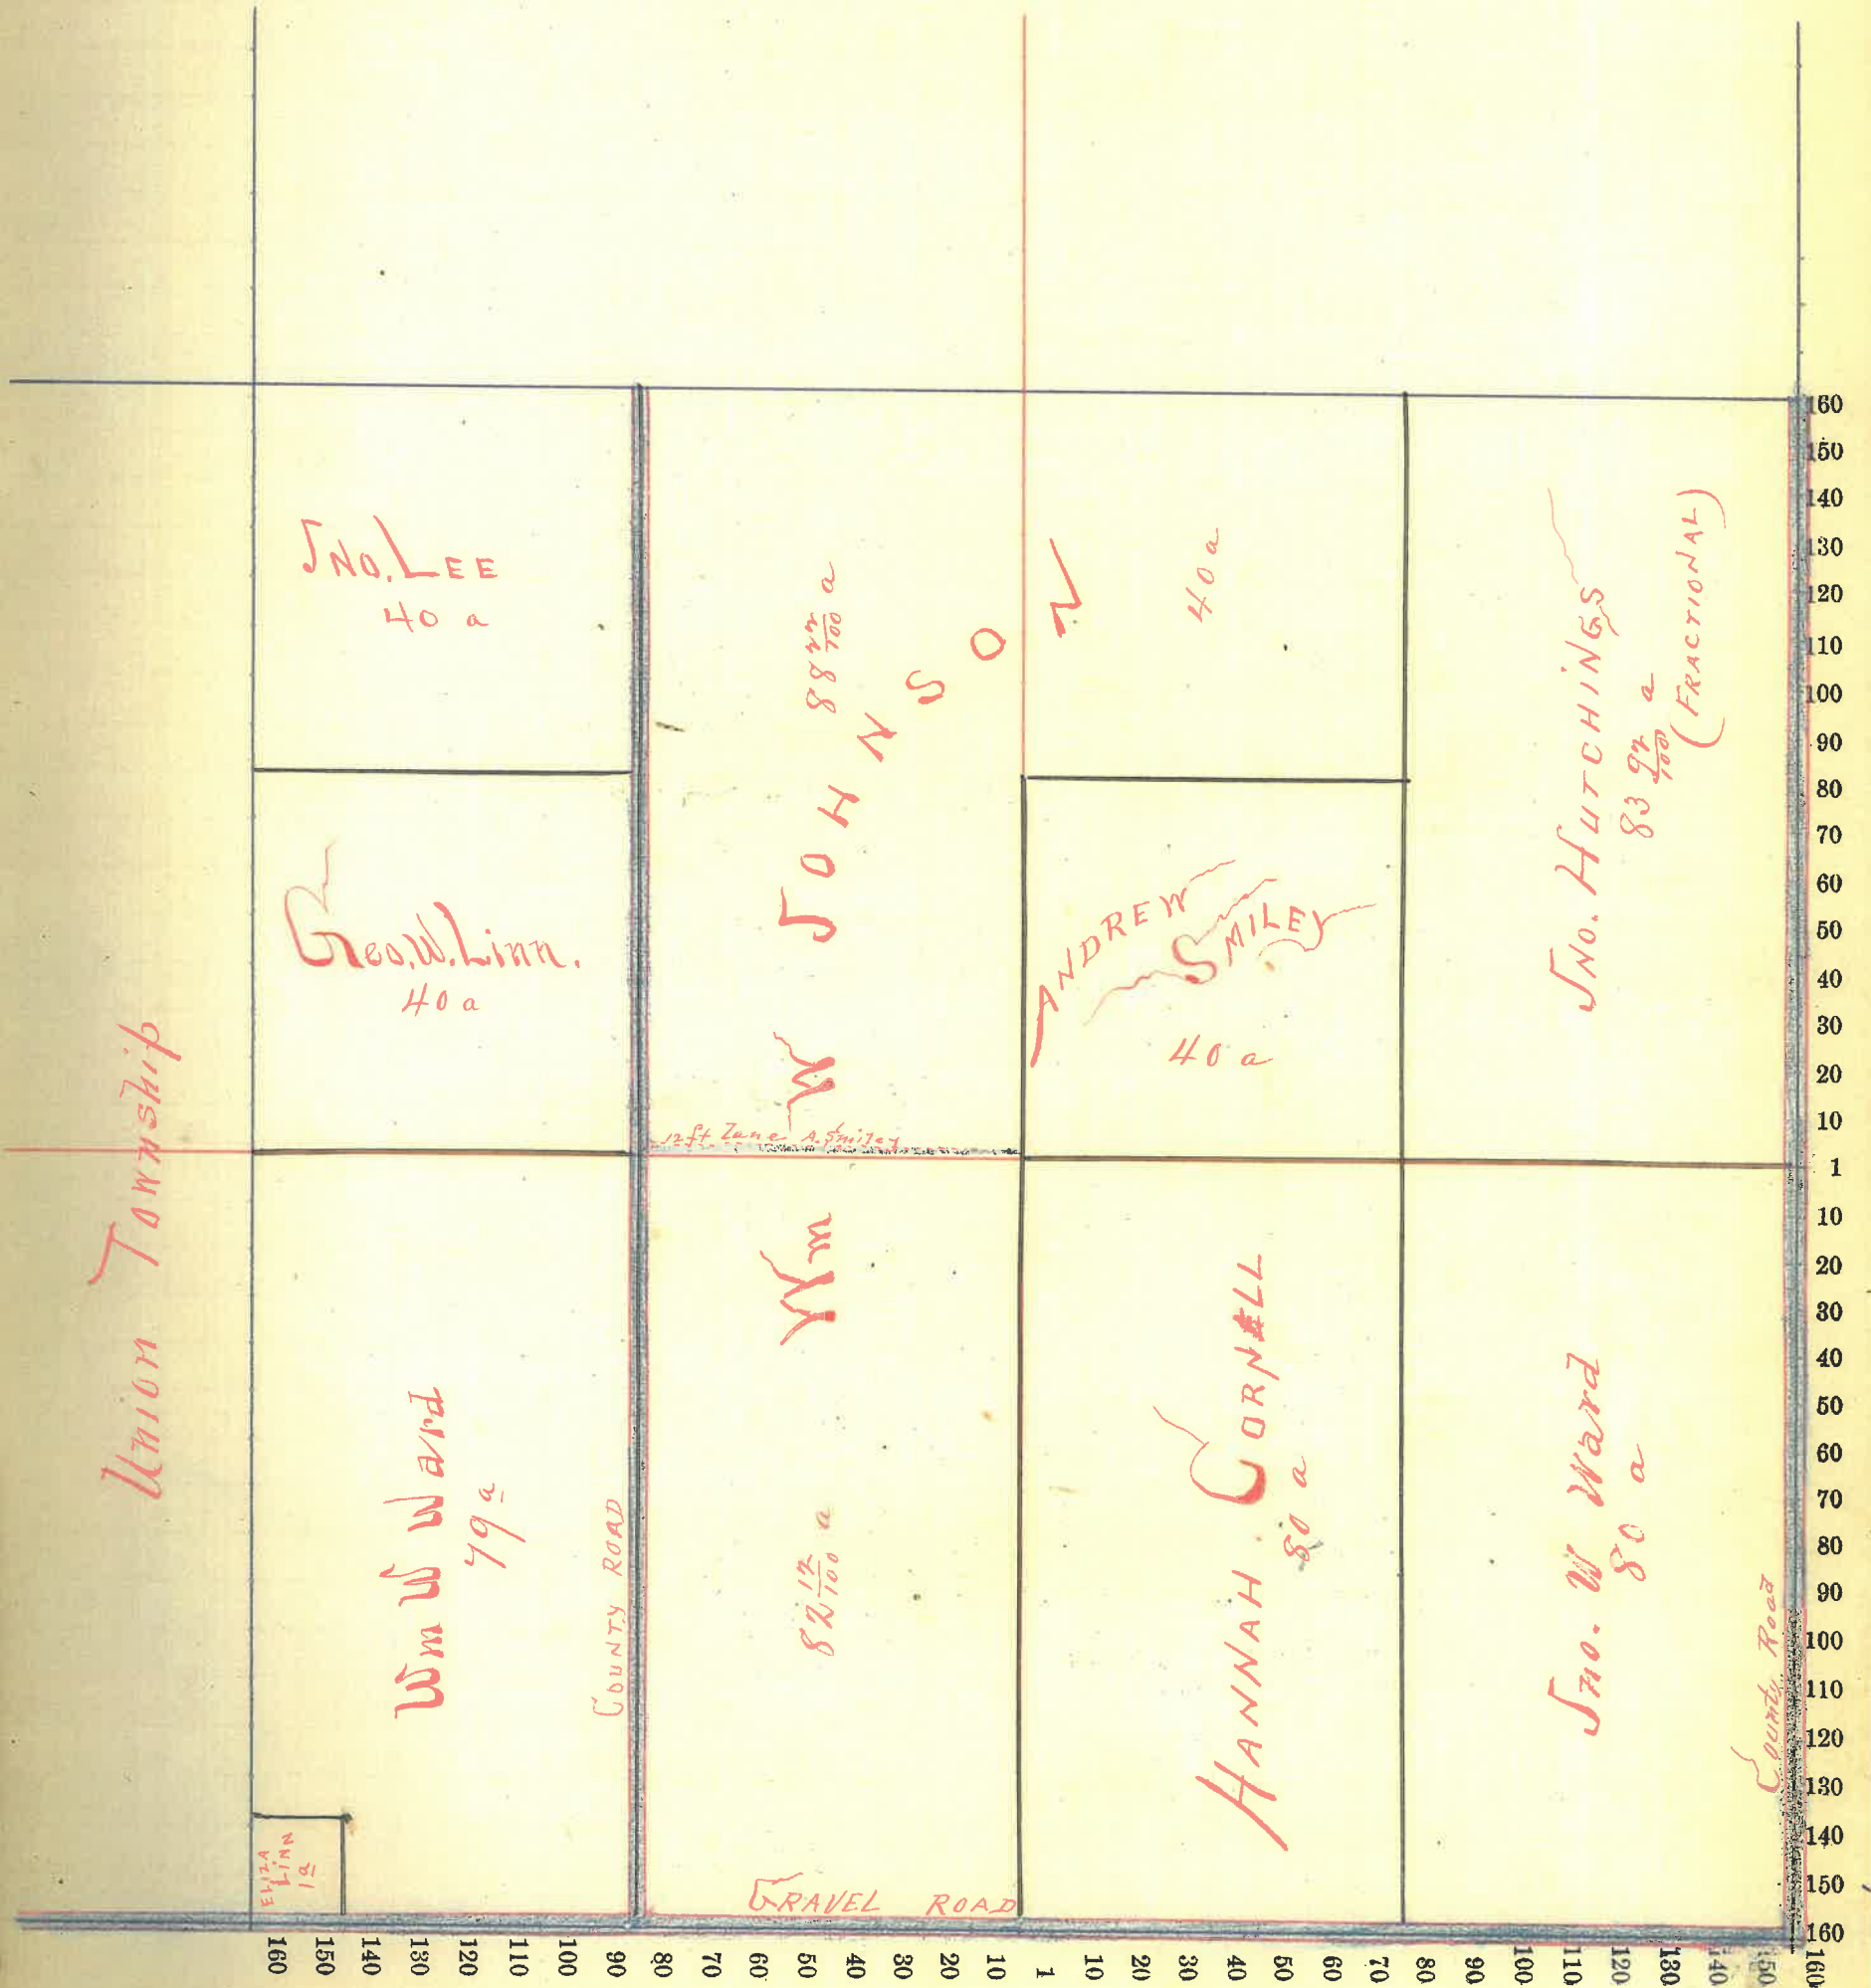 JNO. LEE
40 a
Geo. W. Linn.
40 a
Union Township
Wm W Ward
79 a
ELIZA
LINN
1 a
COUNTY ROAD
Wm W JOHNSON
88 22/100 a
40 a
82 12/100 a
12 ft Lane A. Smiley
GRAVEL ROAD
ANDREW
SMILEY
40 a
HANNAH CORNELL
80 a
JNO. HUTCHINGS
83 92/100 a
(FRACTIONAL)
Jno. W Ward
80 a
County Road
160
150
140
130
120
110
100
90
80
70
60
50
40
30
20
10
1
10
20
30
40
50
60
70
80
90
100
110
120
130
140
150
160
160 150 140 130 120 110 100 90 80 70 60 50 40 30 20 10 1 10 20 30 40 50 60 70 80 90 100 110 120 130 140 150 160